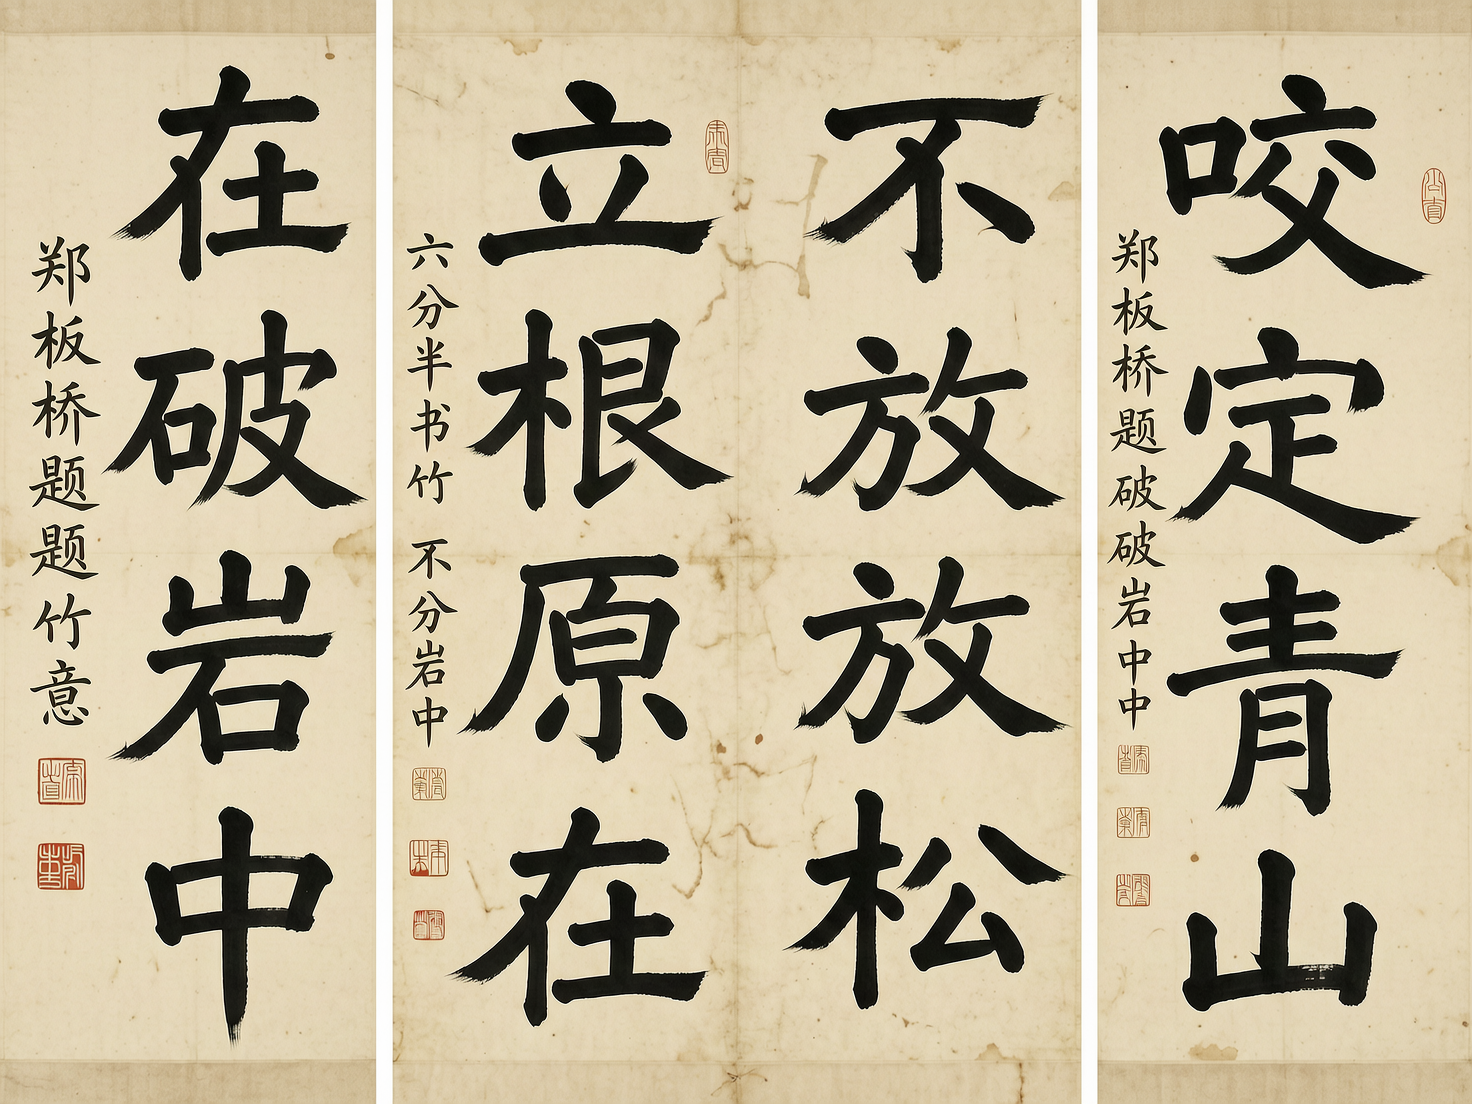 咬定青山
郑板桥题破破岩中中
不放放松
立根原在
六分半书竹 不分岩中
在破岩中
郑板桥题题竹意